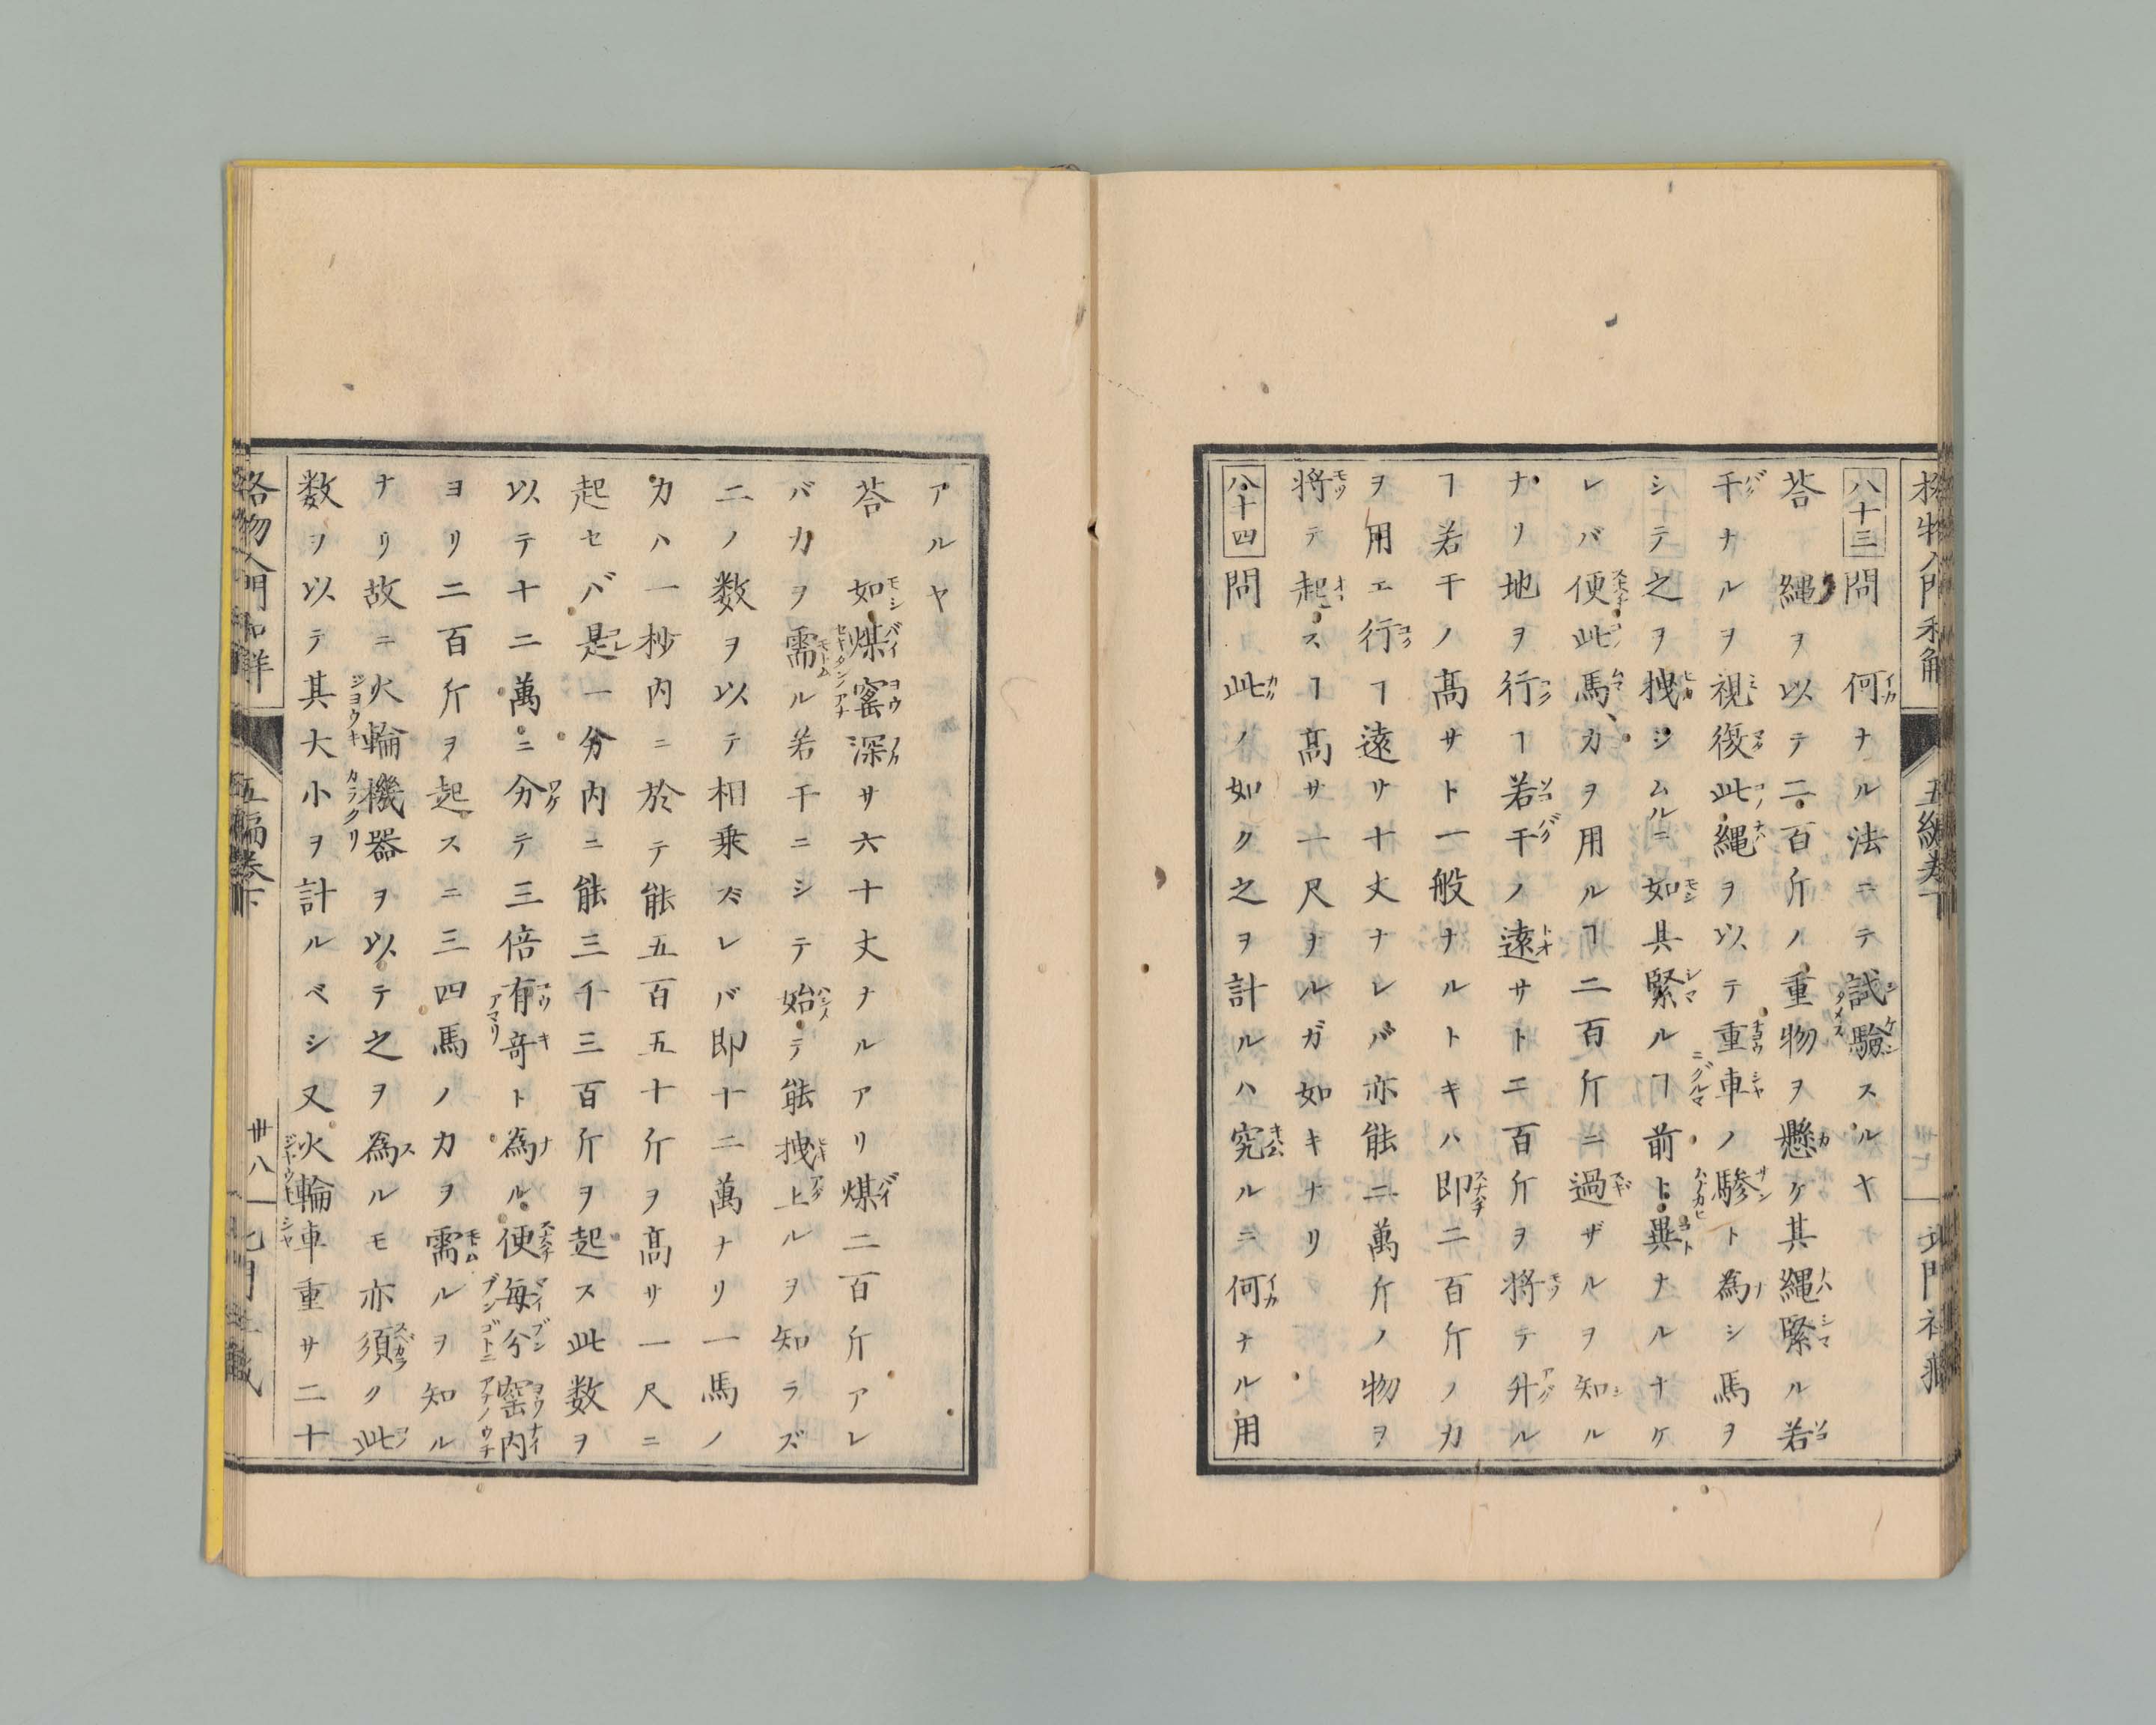 八十三問　何ナル法ニテ試驗スルヤ
荅　繩ヲ以テ二百斤ノ重物ヲ懸ケ其繩緊ル若
干ナルヲ視復此繩ヲ以テ重車ノ驂ト為シ馬ヲ
シテ之ヲ拽シムルニ如其緊ルヿ前ト異ナルナケ
レバ便此馬力ヲ用ルヿ二百斤ニ過ザルヲ知ル
ナリ地ヲ行ヿ若干ノ遠サト二百斤ヲ將テ升ル
ヿ若干ノ髙サト一般ナルトキハ即二百斤ノ力
ヲ用エ行ヿ遠サ十丈ナレバ亦能二萬斤ノ物ヲ
將テ起スヿ髙サ一尺ナルガ如キナリ
八十四問　此ノ如ク之ヲ計ルハ究ルニ何ナル用
アルヤ
荅　如煤窰深サ六十丈ナルアリ煤二百斤アレ
バ力ヲ需ル若干ニシテ始テ能拽上ルヲ知ラズ
二ノ数ヲ以テ相乗ズレバ即十二萬ナリ一馬ノ
力ハ一杪内ニ於テ能五百五十斤ヲ髙サ一尺ニ
起セバ是一分内ニ能三千三百斤ヲ起ス此数ヲ
以テ十二萬ニ分テ三倍有竒ト為ル便毎分窰内
ヨリ二百斤ヲ起スニ三四馬ノ力ヲ需ルヲ知ル
ナリ故ニ火輪機器ヲ以テ之ヲ為ルモ亦須ク此
数ヲ以テ其大小ヲ計ルベシ又火輪車重サ二十
格物入門和解　五編巻下　卅八